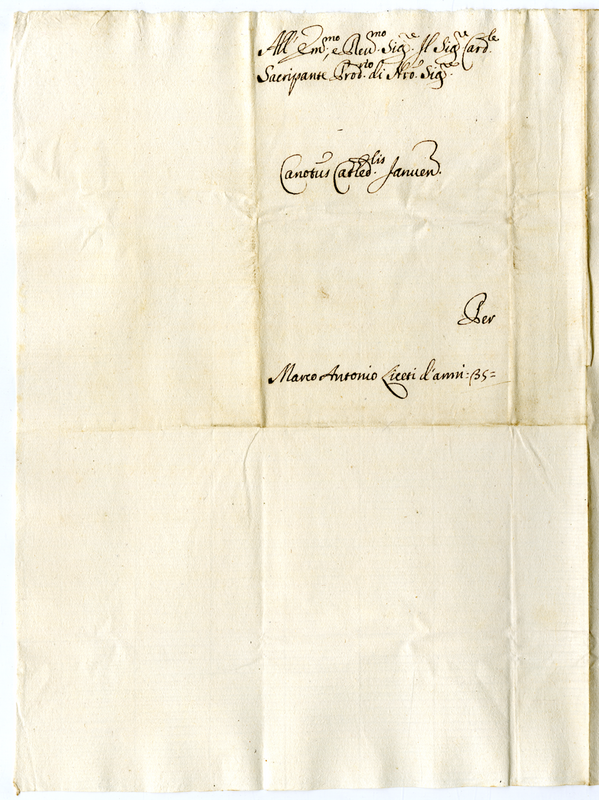 All' Em.mo e Reu.mo Sig.re Il Sig.re Card.le
Sacripante Prod.rio di Nro. Sig.re
Canotus Cathed.lis Januen.
Per
Marco Antonio Liceti d'anni: 35=